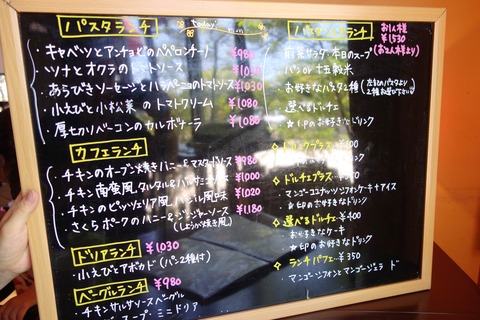 パスタランチ
・キャベツとアンチョビのペペロンチーノ ¥980
・ツナとオクラのトマトソース ¥1030
・あらびきソーセージとハラペーニョのトマトソース ¥1030
・小えびと小松菜のトマトクリーム ¥1080
・厚切りベーコンのカルボナーラ ¥1080
カフェランチ
・チキンのオーブン焼きハニー&マスタードソース ¥980
・チキン南蛮風タルタル&バルサミコソース ¥1000
・チキンのピッツェリア風 バジル風味 ¥1020
・さくらポークのハニー&ジンジャーソース ¥1180
(しょうが焼き風)
ドリアランチ ¥1030
・小えびとアボカド (パン2種付)
ベーグルランチ ¥980
・チキンサルサソースベーグル
スープ・ミニドリア
Today's
ランチ お1人様 ¥1530
(お2人様より)
・前菜サラダ・本日のスープ
・パン or 十五穀米
・お好きなパスタ2種 (左記のパスタより2種お選び下さい)
・選べるドルチェ
・☆印のお好きなドリンク
ドリンクプラス
・☆印のお好きなドリンク
ドルチェプラス
・マンゴーココナッツシフォンケーキ アイス
・☆印のお好きなドリンク
選べるドルチェ ¥400
・お好きなケーキ
・☆印のお好きなドリンク
ランチパフェ ¥350
・マンゴーシフォンとマンゴージェラ ド